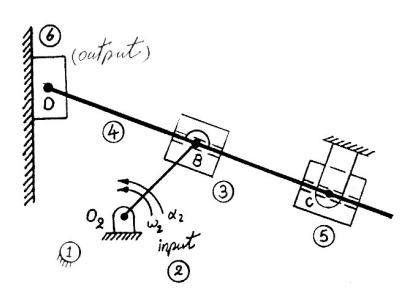 ⑥
(output)
D
④
B
③
C
⑤
O₂
ω₂ α₂
input
②
①